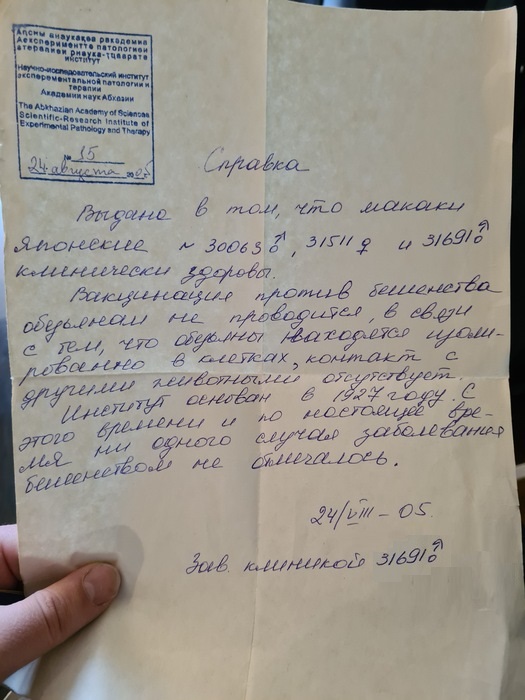 Аԥсны анаукақәа ракадемиа
Аексперименттә патологиеи
атерапиеи рнаука-ҭҵааратә
институт
Научно-исследовательский институт
экспериментальной патологии и
терапии
Академии наук Абхазии
The Abkhazian Academy of Sciences
Scientific-Research Institute of
Experimental Pathology and Therapy
№ 15
24 августа 2005
Справка
Выдана в том, что макаки
японские ~ 30063♂, 31511♀ и 31691♂
клинически здоровы.
Вакцинация против бешенства
обезьянам не проводится, в связи
с тем, что обезьяны находятся изоли-
рованно в клетках, контакт с
другими животными отсутствует.
Институт основан в 1927 году. С
этого времени и по настоящее вре-
мя ни одного случая заболевания
бешенством не отмечалось.
24/VIII - 05.
Зав. клиникой 31691♂